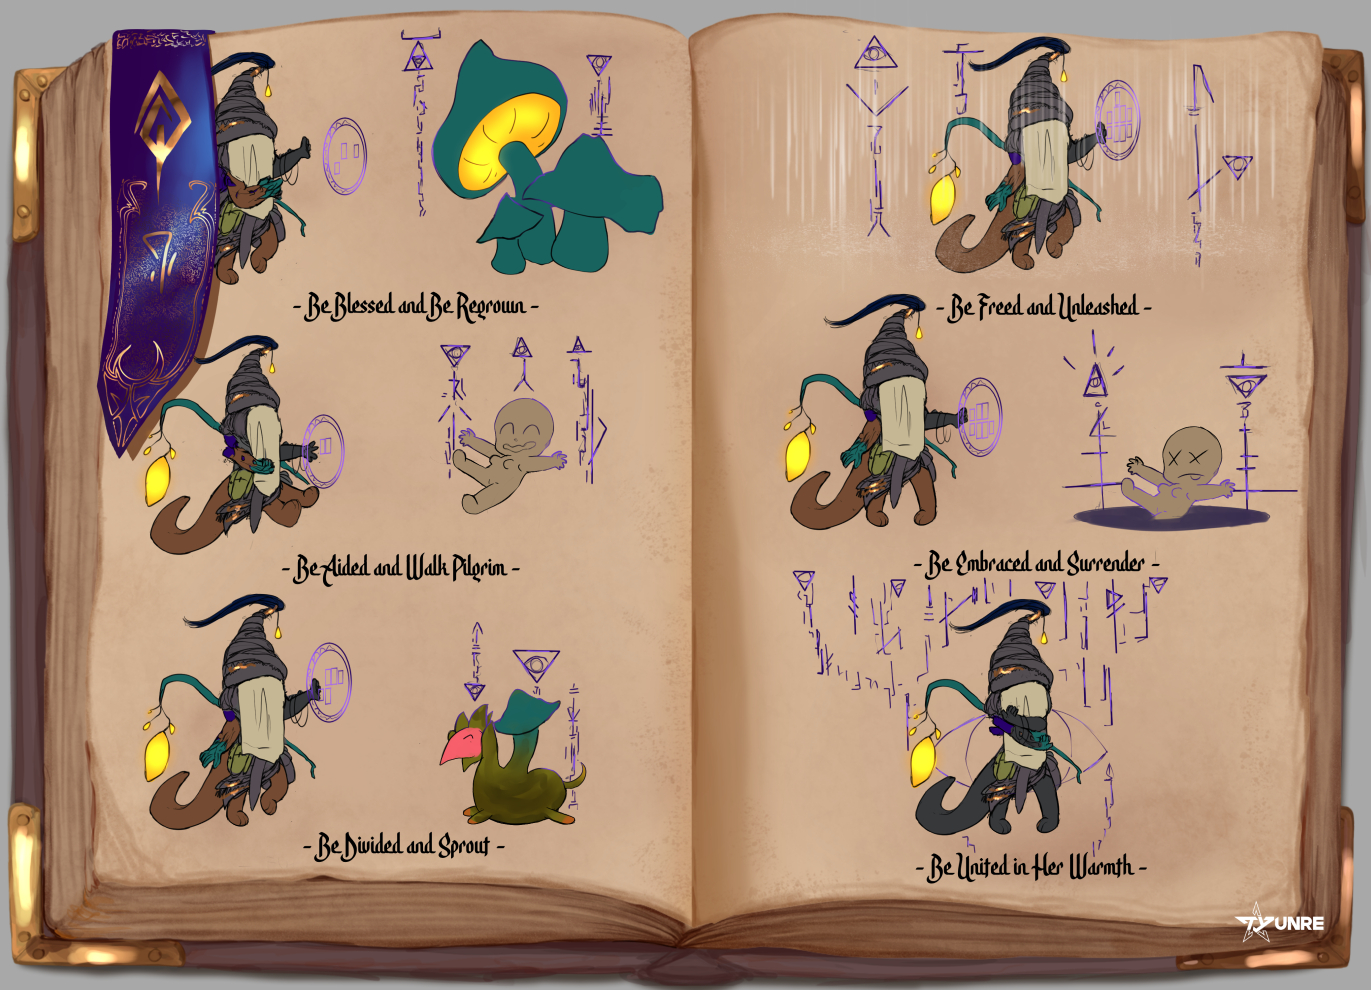 - Be Blessed and Be Regrown -
- Be Aided and Walk Pilgrim -
- Be Divided and Sprout -
- Be Freed and Unleashed -
- Be Embraced and Surrender -
- Be United in Her Warmth -
TYUNRE